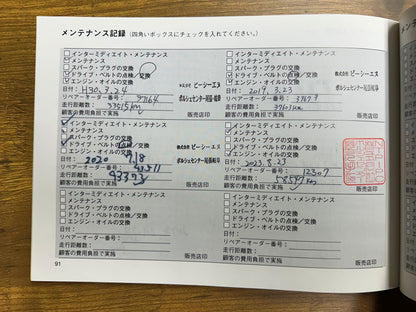 メンテナンス記録 (四角いボックスにチェックを入れてください。)
インターミディエイト・メンテナンス
メンテナンス
スパーク・プラグの交換
ドライブ・ベルトの点検/交換
エンジン・オイルの交換
日付: H30.3.24
リペアーオーダー番号:
走行距離数:
顧客の費用負担で実施
株式会社 ピーシーエヌ
販売店印
インターミディエイト・メンテナンス
メンテナンス
スパーク・プラグの交換
ドライブ・ベルトの点検/交換
エンジン・オイルの交換
日付: 2019.3.23
リペアーオーダー番号:
走行距離数:
顧客の費用負担で実施
株式会社 ピーシーエヌ
販売店印
インターミディエイト・メンテナンス
メンテナンス
スパーク・プラグの交換
ドライブ・ベルトの点検/交換
エンジン・オイルの交換
日付: 2020
リペアーオーダー番号:
走行距離数:
顧客の費用負担で実施
株式会社 ピーシーエヌ
販売店印
インターミディエイト・メンテナンス
メンテナンス
スパーク・プラグの交換
ドライブ・ベルトの点検/交換
エンジン・オイルの交換
日付: 2023.8.23
リペアーオーダー番号: 12307
走行距離数:
顧客の費用負担で実施
販売店印
インターミディエイト・メンテナンス
メンテナンス
スパーク・プラグの交換
ドライブ・ベルトの点検/交換
エンジン・オイルの交換
日付:
リペアーオーダー番号:
走行距離数:
顧客の費用負担で実施
販売店印
インターミディエイト・メンテナンス
メンテナンス
スパーク・プラグの交換
ドライブ・ベルトの点検/交換
エンジン・オイルの交換
日付:
リペアーオーダー番号:
走行距離数:
顧客の費用負担で実施
販売店印
91